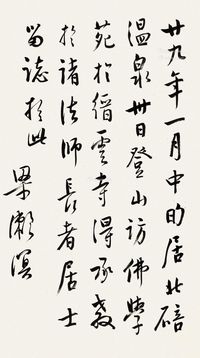 廿九年一月中的居北碚
温泉卅日登山访佛學
苑於缙雲寺得承教
於諸法师長者居士
留誌於此
梁漱溟